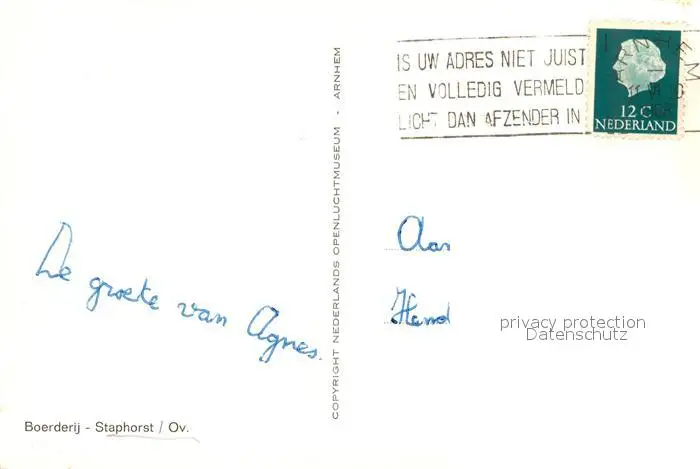 IS UW ADRES NIET JUIST
EN VOLLEDIG VERMELD
LICHT DAN AFZENDER IN
12 C
NEDERLAND
COPYRIGHT NEDERLANDS OPENLUCHTMUSEUM - ARNHEM
De groete van Agnes.
Aan
privacy protection
Datenschutz
Boerderij - Staphorst / Ov.